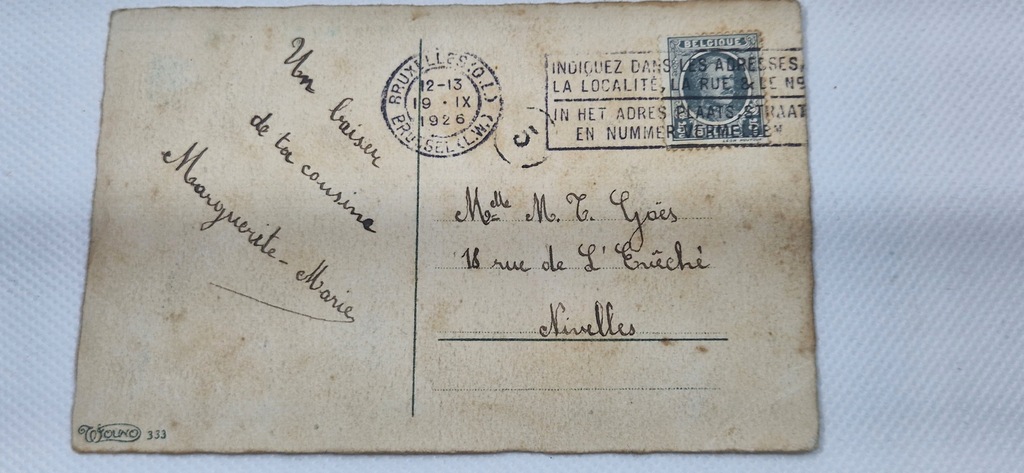 Un baiser
de ta cousine
Marguerite-Marie
BRUXELLES (Q.L.)
12-13
19 · IX
1926
BRUSSEL (L.W.)
5
BELGIQUE
INDIQUEZ DANS LES ADRESSES,
LA LOCALITÉ, LA RUE & LE Nº
IN HET ADRES PLAATS, STRAAT
EN NUMMER VERMELDEN
Melle M. T. Goës
16 rue de L'Evêché
Nivelles
333